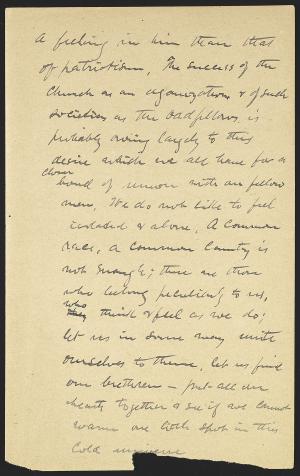 a feeling in him than that
of patriotism. The success of the
Church as an organization & of such
societies as the Oddfellows, is
probably owing largely to this
desire which we all have for a
closer
bond of union with our fellow
men. We do not like to feel
isolated & alone. A Common
race, a Common Country is
not enough; there are those
who belong peculiarly to us,
who
think & feel as we do;
let us in some way unite
ourselves to them, let us find
our brethren – put all our
hearts together & see if we cannot
warm one little spot in this
Cold universe